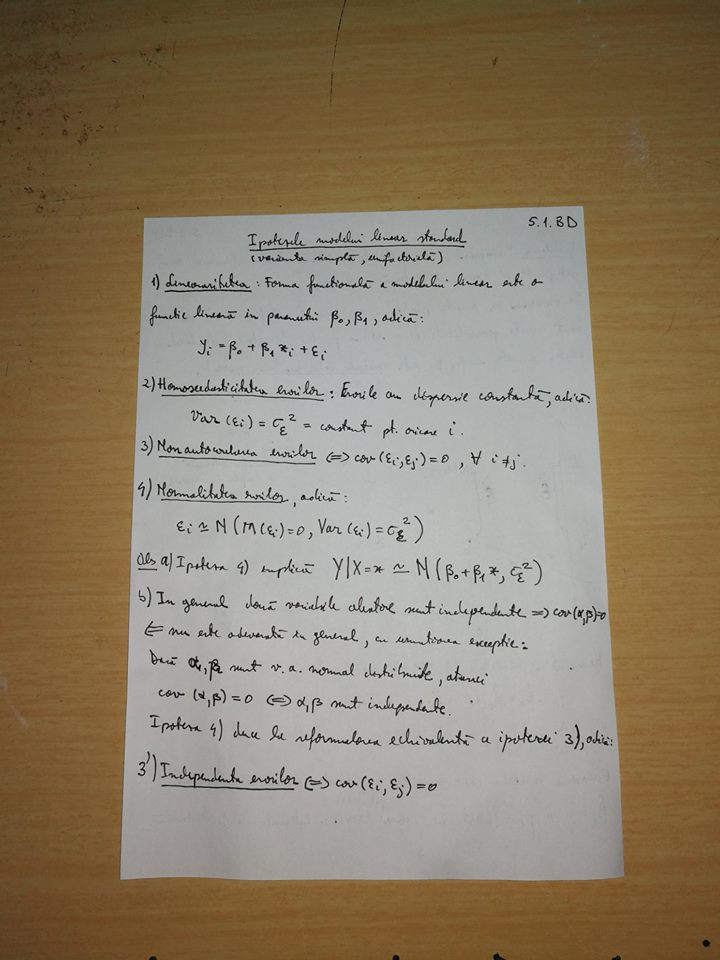 5.1.BD
Ipotezele modelului linear standard
(varianta simplă, unifactorială)
1) Linearitatea : Forma funcțională a modelului linear este o
funcție lineară în parametrii β₀, β₁, adică:
yᵢ = β₀ + β₁ xᵢ + εᵢ
2) Homoscedasticitatea erorilor : Erorile au dispersie constantă, adică:
Var (εᵢ) = σ_ε² = constant pt. oricare i.
3) Nonautocorelarea erorilor ⟺ cov(εᵢ, εⱼ) = 0 , ∀ i ≠ j.
4) Normalitatea erorilor, adică:
εᵢ ≃ N ( M(εᵢ) = 0, Var (εᵢ) = σ_ε² )
Obs a) Ipoteza 4) implică Y|X=x ≃ N ( β₀ + β₁ x, σ_ε² )
b) În general două variabile aleatoare sunt independente ⟹ cov(α,β)=0
⟸ nu este adevărată în general, cu următoarea excepție:
Dacă α, β sunt v.a. normal distribuite, atunci
cov (α, β) = 0 ⟺ α, β sunt independente.
Ipoteza 4) duce la reformularea echivalentă a ipotezei 3), adică:
3') Independența erorilor ⟺ cov (εᵢ, εⱼ) = 0